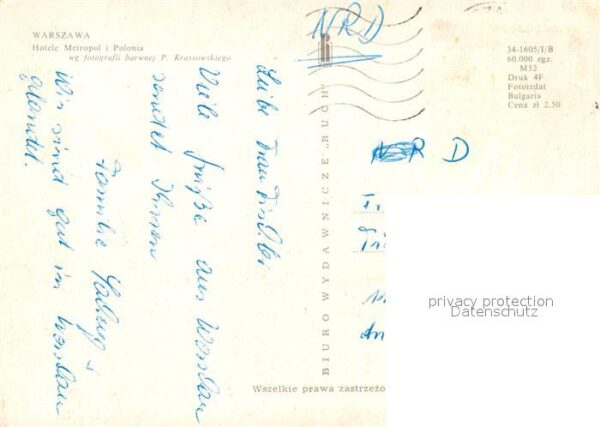 WARSZAWA
Hotele Metropol i Polonia
wg fotografii barwnej P. Krassowskiego
NRD
34-1605/I/B
60.000 egz.
M52
Druk 4F
Fotoizdat
Bulgaria
Cena zł 2.50
Liebe Frau
Viele Grüße aus Warschau
sendet Ihnen
Familie
Wir sind gut in Warschau
gelandet.
BIURO WYDAWNICZE "RUCH"
NRD
privacy protection
Datenschutz
Wszelkie prawa zastrzeżo